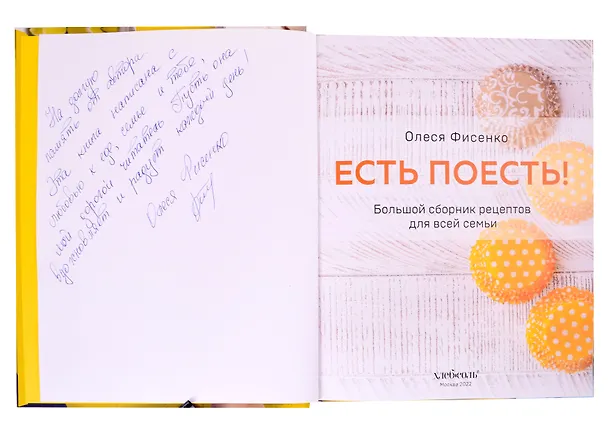 На долгую
память от автора.
Эта книга написана с
любовью к еде, семье и тебе,
мой дорогой читатель. Пусть она
вдохновляет и радует каждый день!
Олеся Фисенко
Олеся Фисенко
ЕСТЬ ПОЕСТЬ!
Большой сборник рецептов
для всей семьи
хлебсоль
Москва 2022